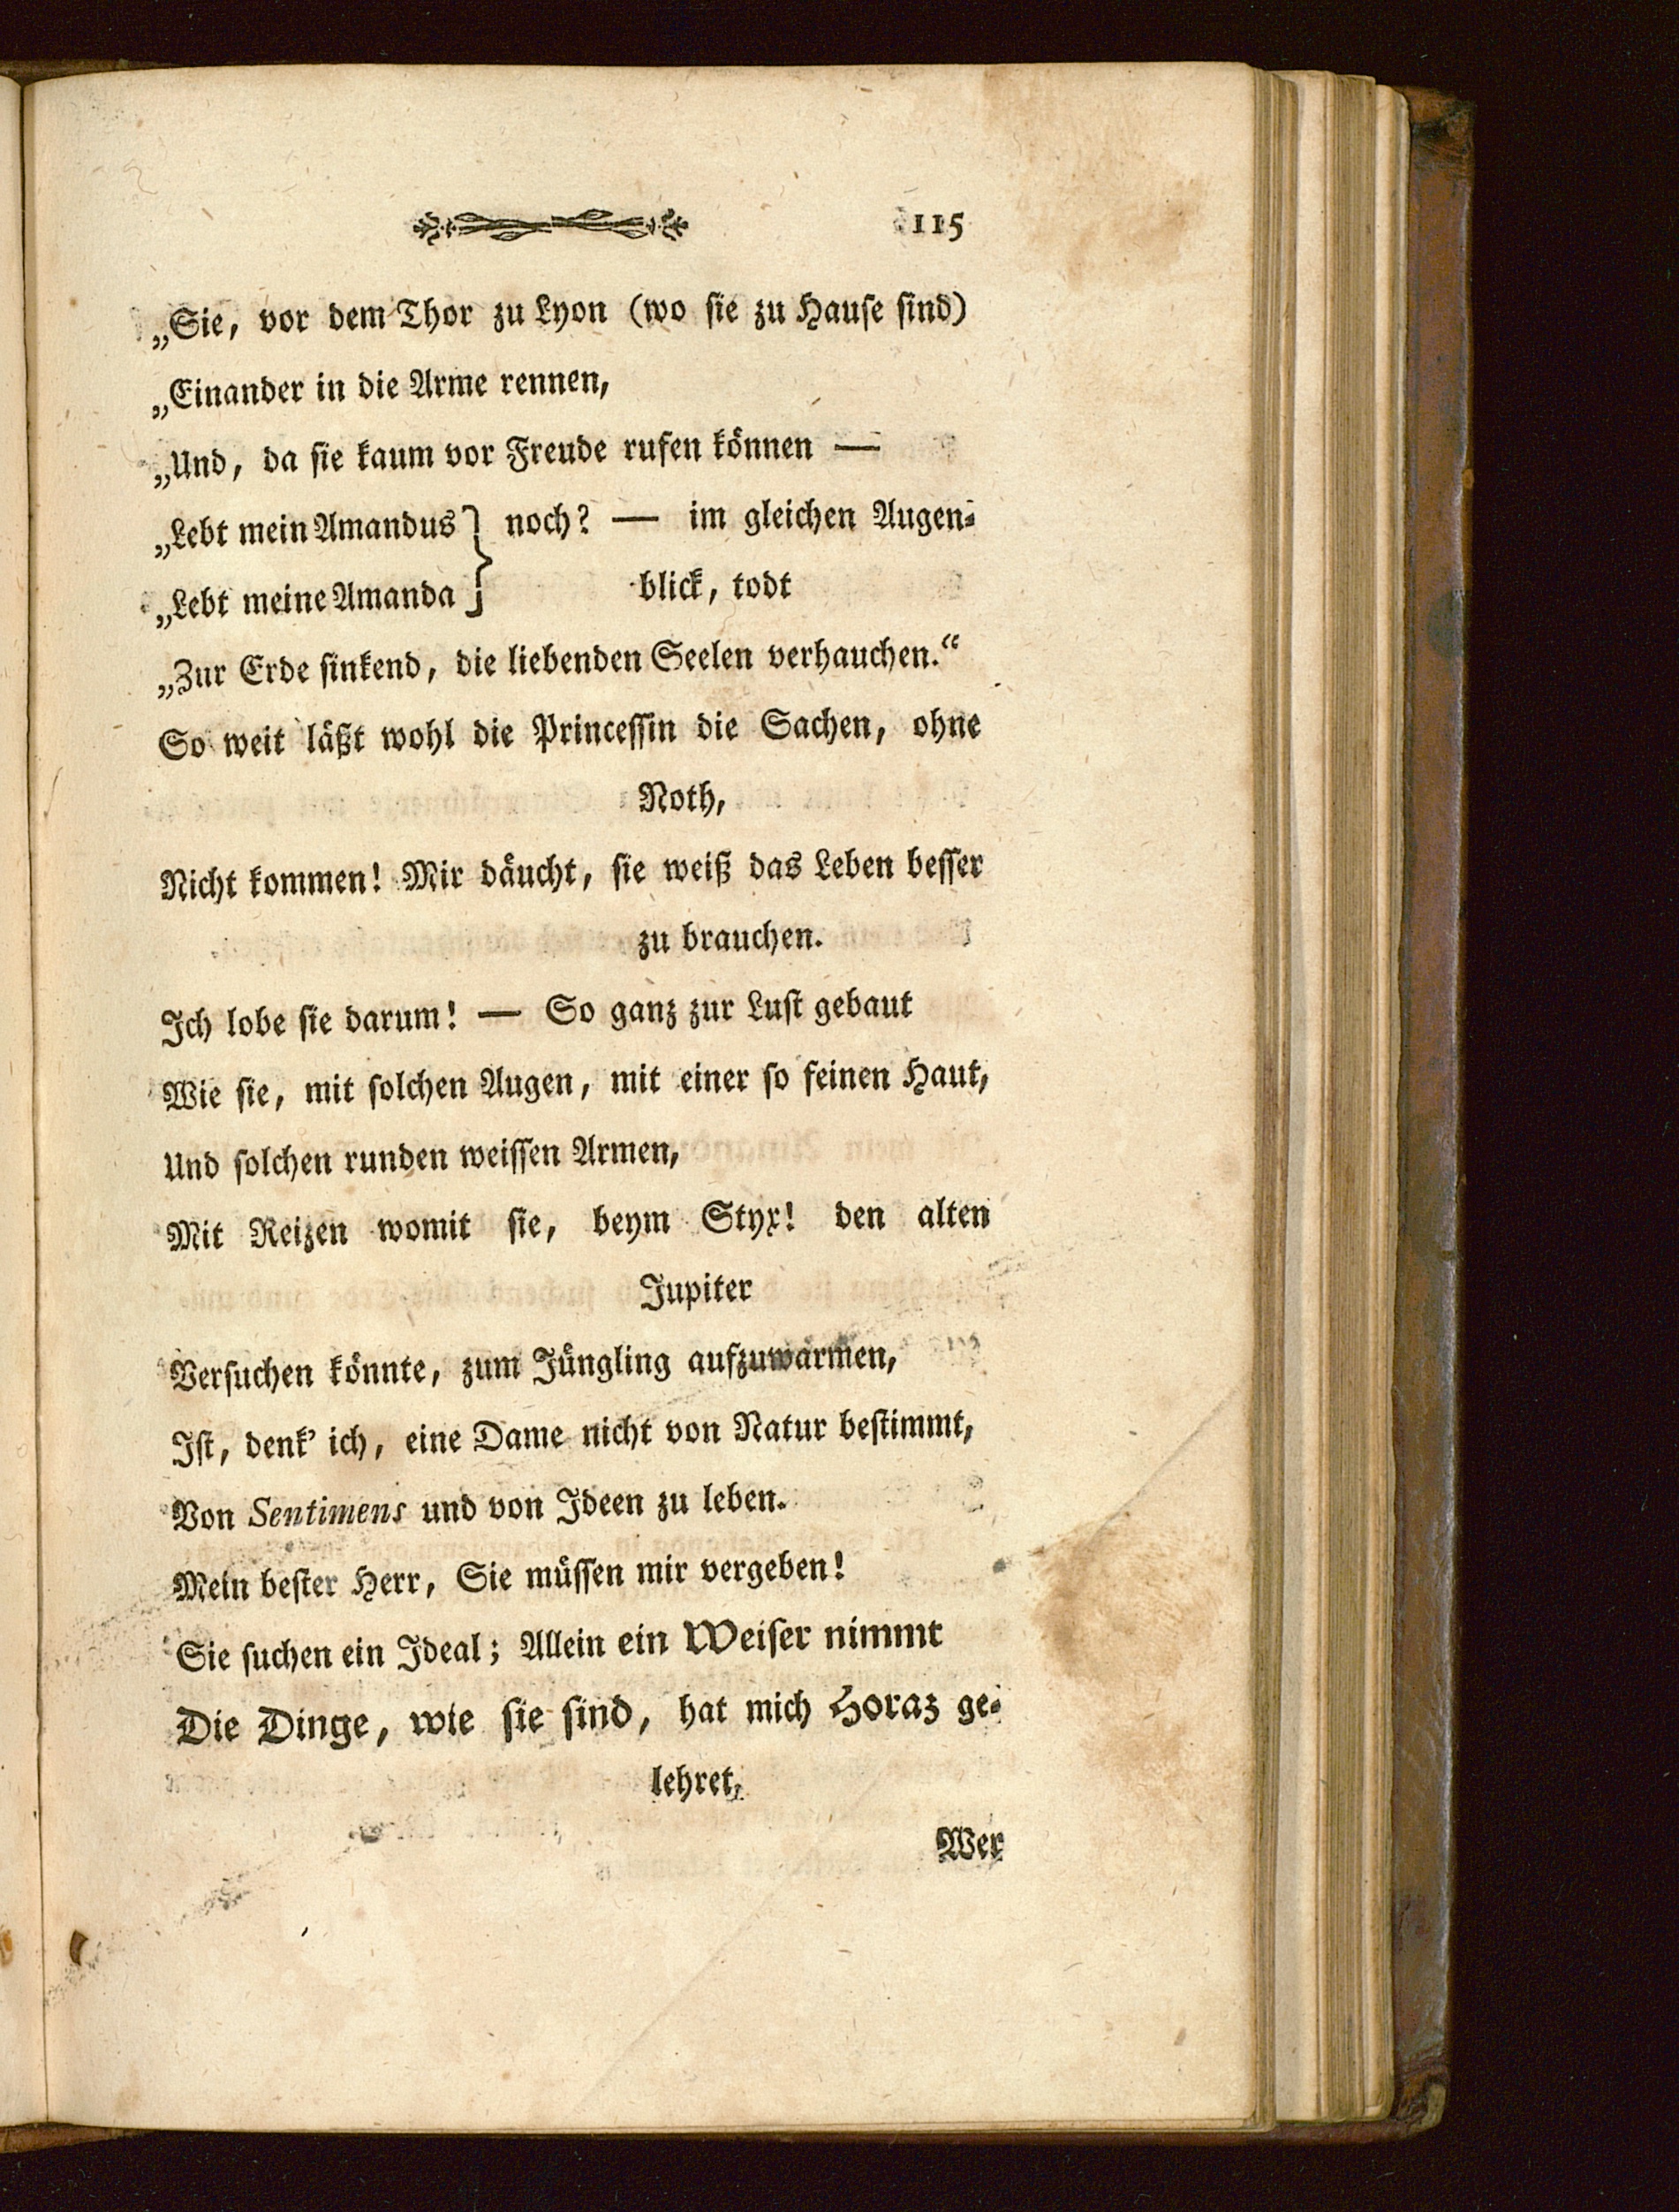 115
„Sie, vor dem Thor zu Lyon (wo sie zu Hause sind)
„Einander in die Arme rennen,
„Und, da sie kaum vor Freude rufen können —
„Lebt mein Amandus } noch? — im gleichen Augen-
„Lebt meine Amanda } blick, todt
„Zur Erde sinkend, die liebenden Seelen verhauchen.“
So weit läßt wohl die Princessin die Sachen, ohne
Noth,
Nicht kommen! Mir däucht, sie weiß das Leben besser
zu brauchen.
Ich lobe sie darum! — So ganz zur Lust gebaut
Wie sie, mit solchen Augen, mit einer so feinen Haut,
Und solchen runden weissen Armen,
Mit Reizen womit sie, beym Styx! den alten
Jupiter
Versuchen könnte, zum Jüngling aufzuwarmen,
Ist, denk’ ich, eine Dame nicht von Natur bestimmt,
Von Sentimens und von Ideen zu leben.
Mein bester Herr, Sie müssen mir vergeben!
Sie suchen ein Ideal; Allein ein Weiser nimmt
Die Dinge, wie sie sind, hat mich Horaz ge-
lehret,
Wer